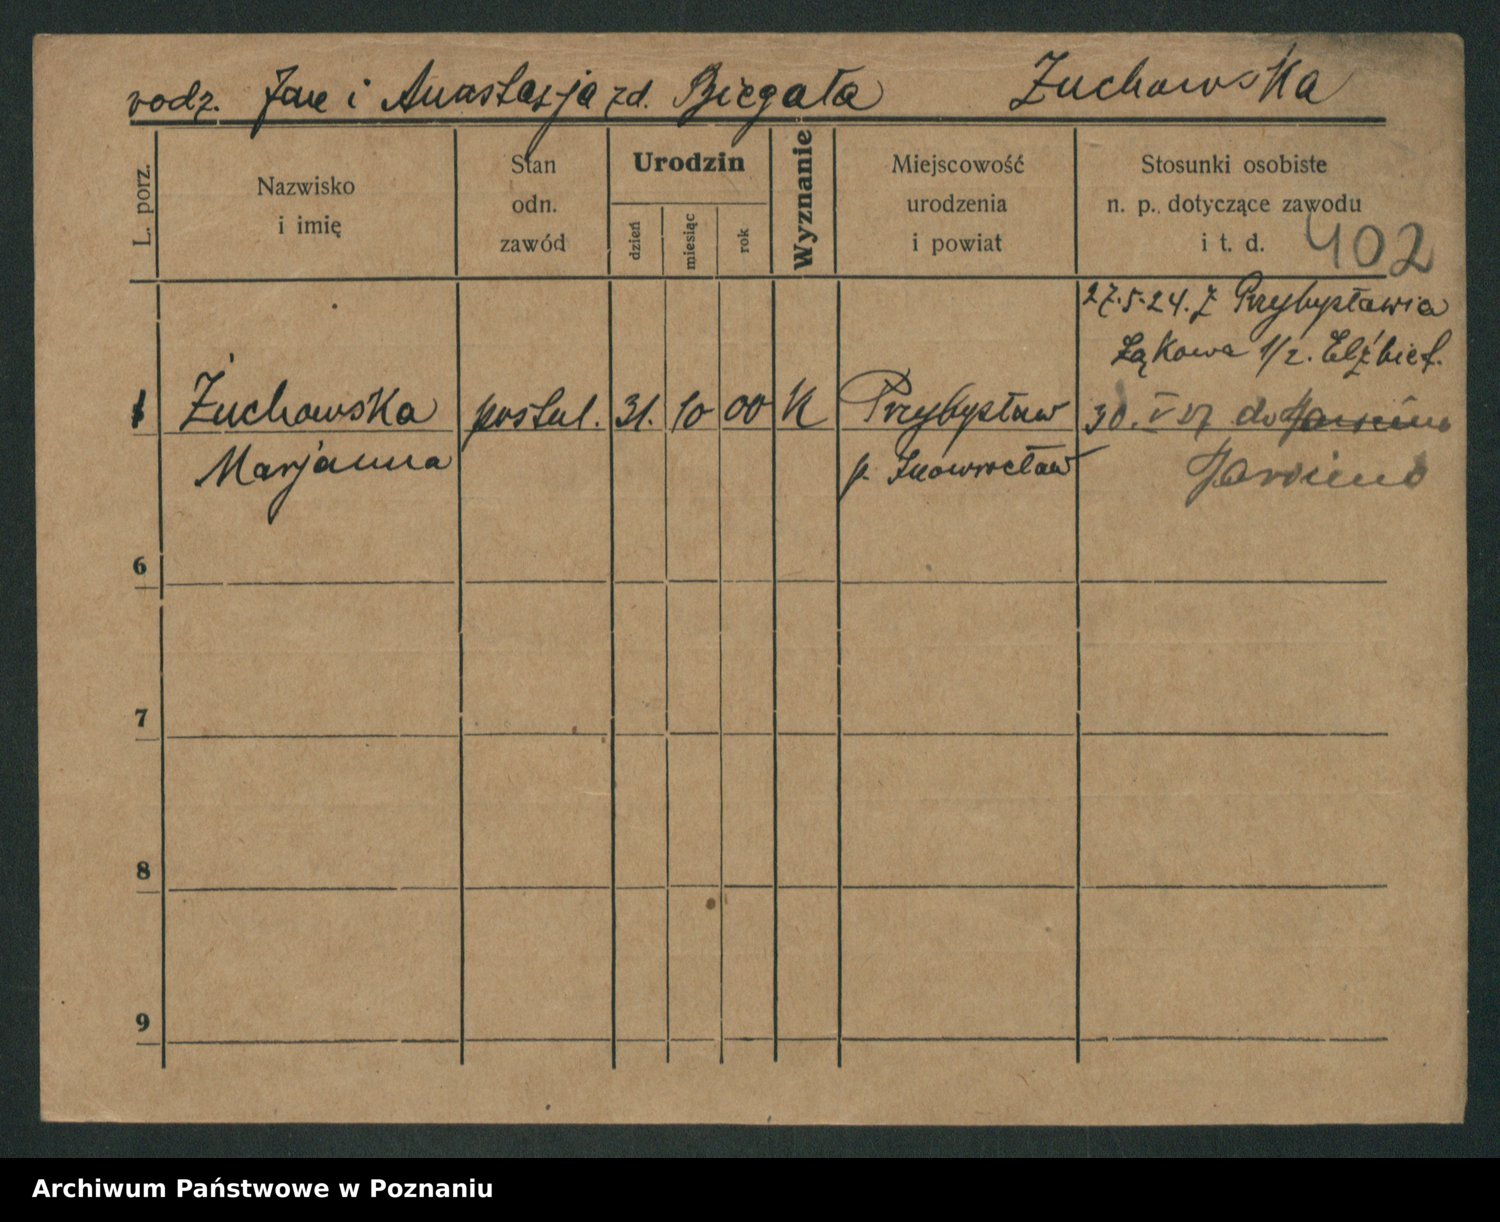 rodz. Jan i Anastazja zd. Biegała Żuchowska
L. porz.
Nazwisko
i imię
Stan
odn.
zawód
Urodzin
dzień
miesiąc
rok
Wyznanie
Miejscowość
urodzenia
i powiat
Stosunki osobiste
n. p. dotyczące zawodu
i t. d.
402
27.5.24. z Przybysławia
Łąkowa 1/2. Elżbiet.
1 Żuchowska postul. 31. 10 00 K Przybysław 30. V 27 do
Marjanna p. Inowrocław
6
7
8
9
Archiwum Państwowe w Poznaniu